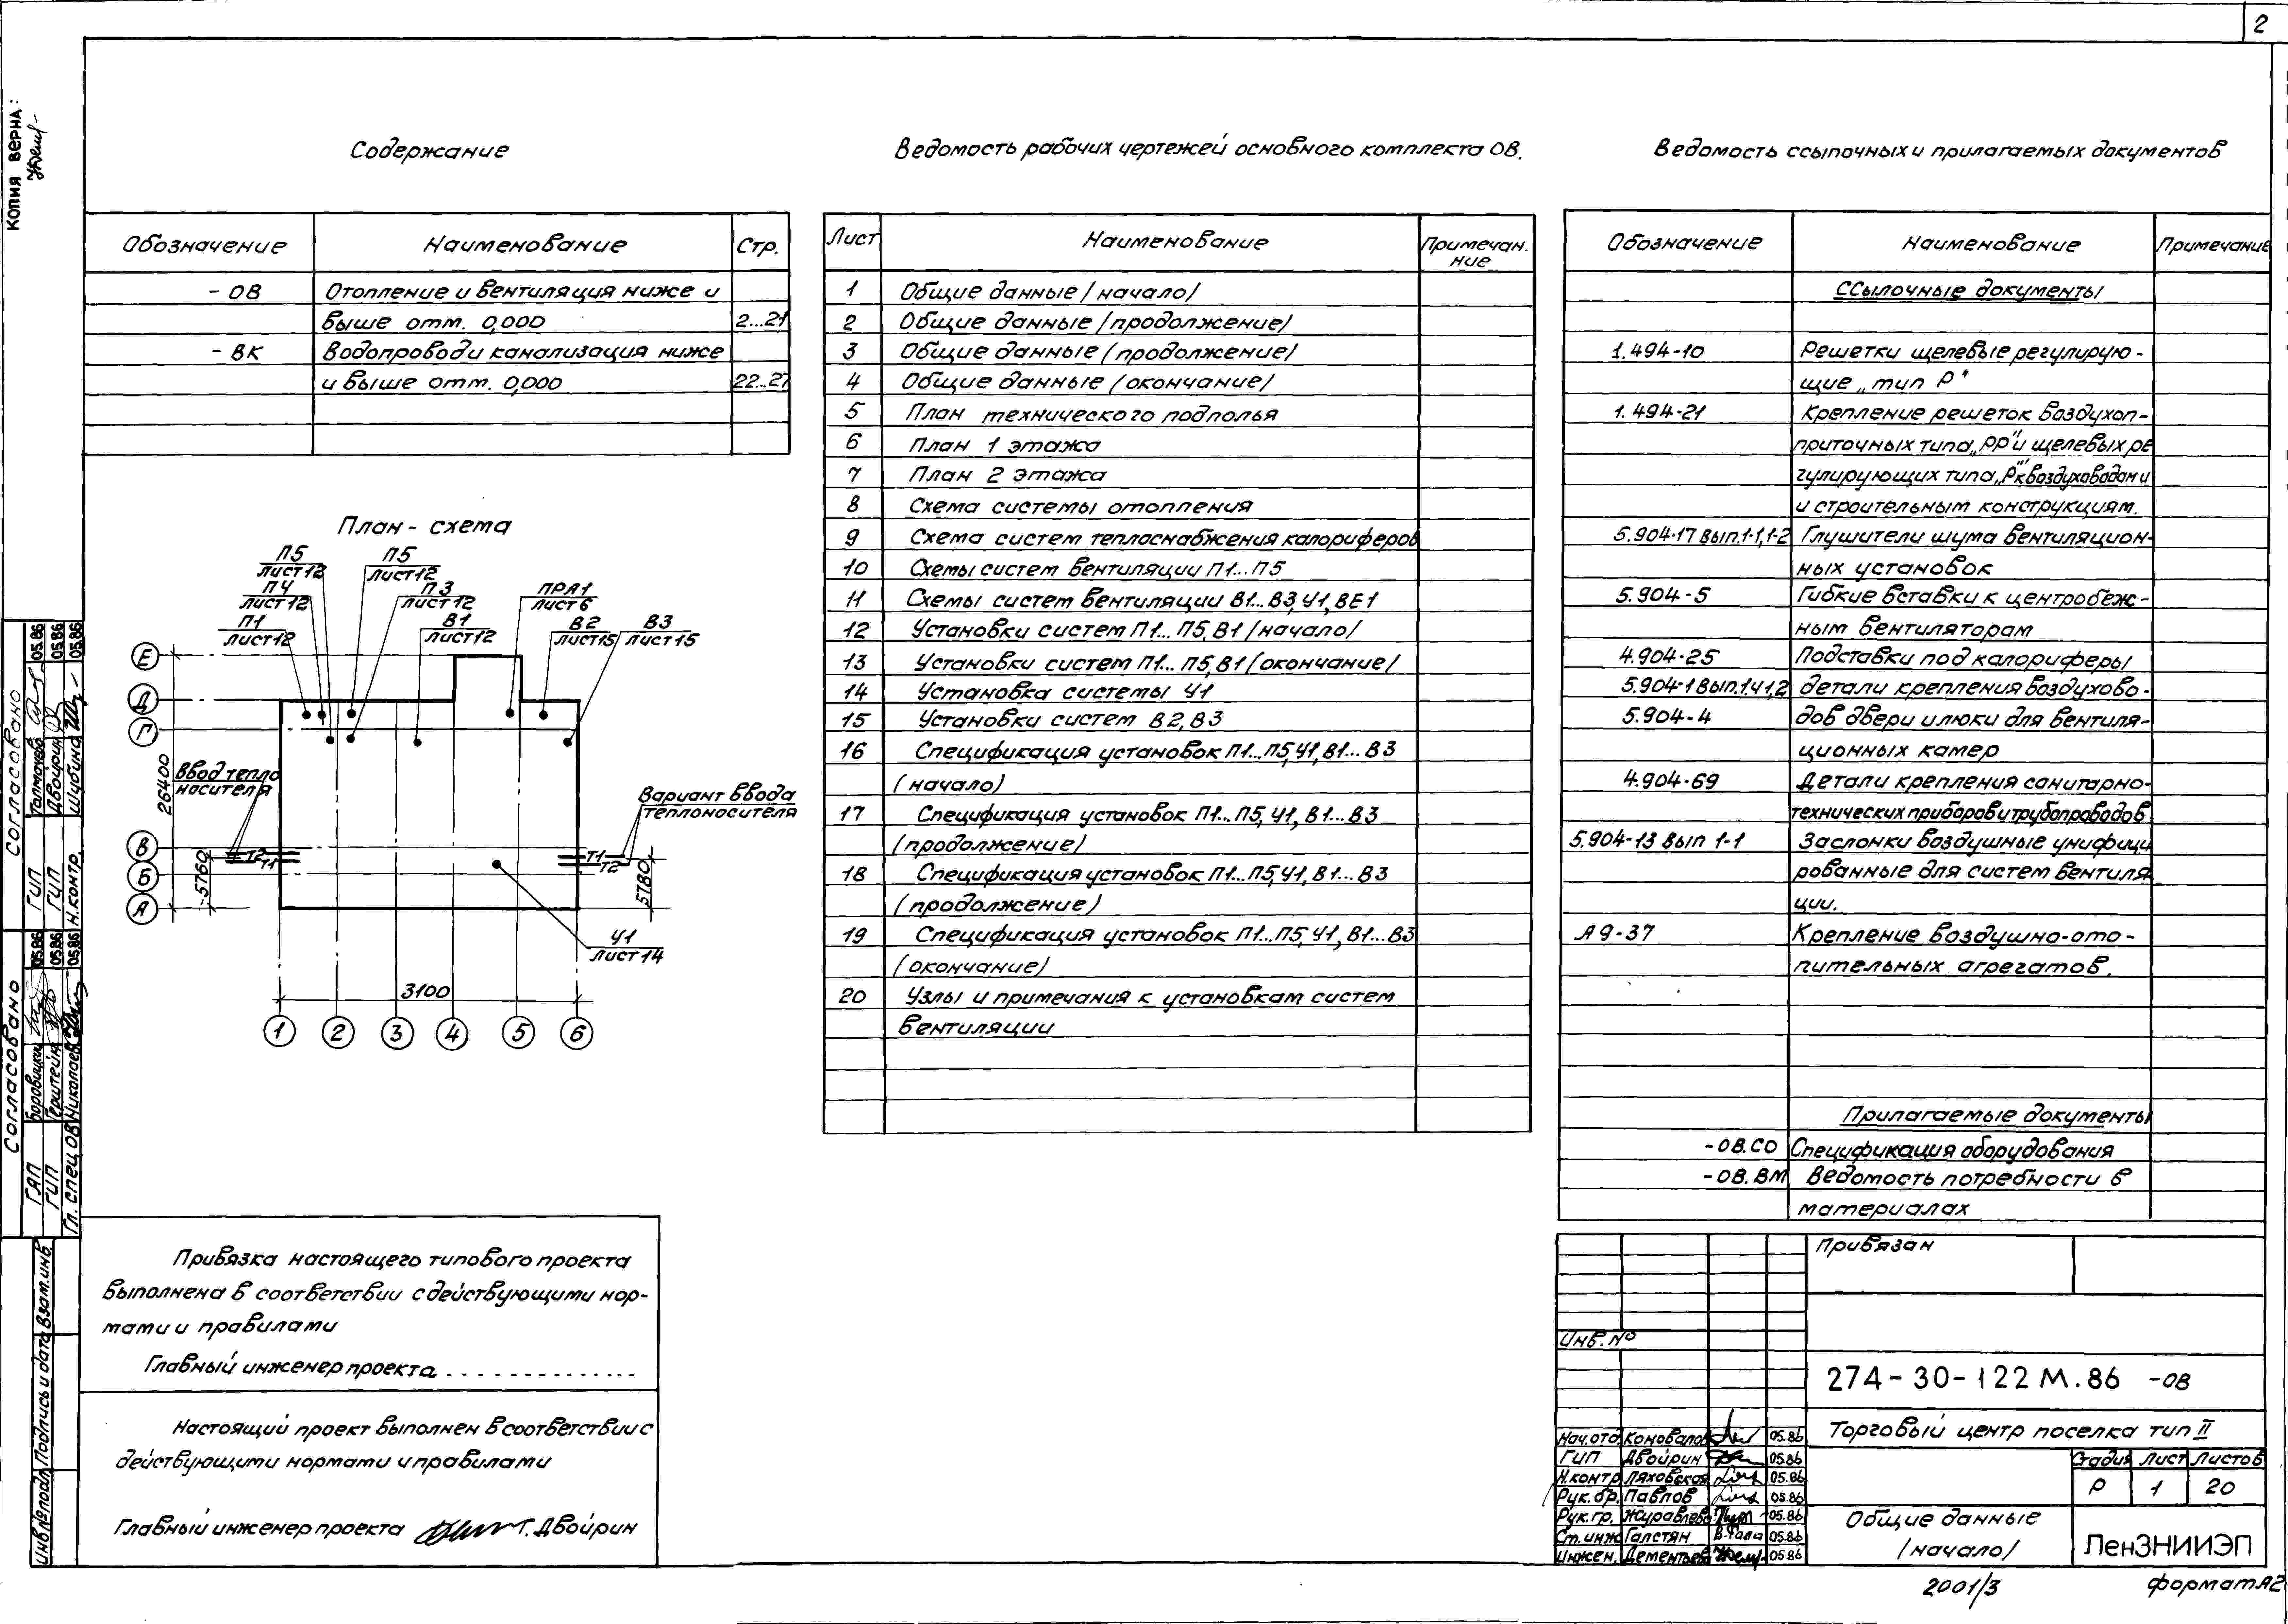 2
КОПИЯ ВЕРНА:
Содержание
Обозначение Наименование Стр.
-ОВ Отопление и вентиляция ниже и
выше отм. 0,000 2...21
-ВК Водопровод и канализация ниже
и выше отм. 0,000 22...27
План-схема
П5
лист 12
П5
лист 12
П4
лист 12
П3
лист 12
ПРА1
лист 6
П1
лист 12
В1
лист 12
В2
лист 15
В3
лист 15
Е
Д
Г
В
Б
А
26400
Ввод тепло
носителя
Вариант ввода
теплоносителя
Т2
Т1
Т1
Т2
5760
5780
У1
лист 14
3100
1 2 3 4 5 6
Привязка настоящего типового проекта
выполнена в соответствии с действующими нор-
мами и правилами
Главный инженер проекта ...............
Настоящий проект выполнен в соответствии с
действующими нормами и правилами
Главный инженер проекта Г. Двойрин
Ведомость рабочих чертежей основного комплекта ОВ.
Лист Наименование Примечан.
ние
1 Общие данные /начало/
2 Общие данные /продолжение/
3 Общие данные /продолжение/
4 Общие данные /окончание/
5 План технического подполья
6 План 1 этажа
7 План 2 этажа
8 Схема системы отопления
9 Схема систем теплоснабжения калориферов
10 Схемы систем вентиляции П1...П5
11 Схемы систем вентиляции В1...В3, У1, ВЕ1
12 Установки систем П1...П5, В1 /начало/
13 Установки систем П1...П5, В1 /окончание/
14 Установка системы У1
15 Установки систем В2, В3
16 Спецификация установок П1...П5, У1, В1...В3
(начало)
17 Спецификация установок П1...П5, У1, В1...В3
(продолжение)
18 Спецификация установок П1...П5, У1, В1...В3
(продолжение)
19 Спецификация установок П1...П5, У1, В1...В3
(окончание)
20 Узлы и примечания к установкам систем
вентиляции
Ведомость ссылочных и прилагаемых документов
Обозначение Наименование Примечание
Ссылочные документы
1.494-10 Решетки щелевые регулирую-
щие „тип Р"
1.494-21 Крепление решеток воздухоп-
приточных типа „РР" и щелевых ре
гулирующих типа „Р" к воздуховодам и
и строительным конструкциям.
5.904-17 вып.1-1,1-2 Глушители шума вентиляцион-
ных установок
5.904-5 Гибкие вставки к центробеж-
ным вентиляторам
4.904-25 Подставки под калориферы
5.904-1 Вып.1ч1,2 детали крепления воздухово-
5.904-4 дов двери и люки для вентиля-
ционных камер
4.904-69 Детали крепления санитарно-
технических приборов и трубопроводов
5.904-13 Вып 1-1 Заслонки воздушные унифици
рованные для систем вентиля
ции.
А9-37 Крепление воздушно-ото-
пительных агрегатов.
Прилагаемые документы
-ОВ.СО Спецификация оборудования
-ОВ.ВМ Ведомость потребности в
материалах
Привязан
Инв.№
274-30-122 М.86 -ОВ
Торговый центр поселка тип II
Стадия Лист Листов
Р 1 20
Общие данные
/начало/
ЛенЗНИИЭП
Нач.отд. Коновалов 05.86
ГИП Двойрин 05.86
Н.контр Ляховская 05.86
Рук.бр. Павлов 05.86
Рук.гр. Журавлева 05.86
Ст.инж Галстян 05.86
Инжен. Дементьева 05.86
2001/3
формат А2
Согласовано
ГИП Толмачева 05.86
ГИП Двойрин 05.86
Н.контр. Шубина 05.86
Согласовано
ГАП Боровицки 05.86
ГИП 05.86
Гл. спец ОВ Николаев 05.86
Взам.инв.
Подпись и дата
Инв.№подл